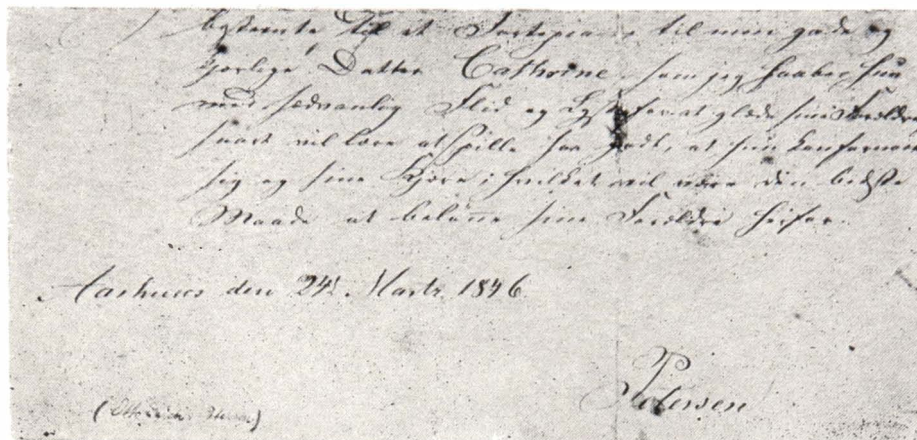 bestemte til et Fortepiano til min gode og
kjærlige Datter Cathrine som jeg haaber hun
med sædvanlig Flid og Lyst for at glæde sine Forældre
snart vil lære at spille saa godt, at hun kan fornøie
sig og sine Kjære i hvilket vil være den bedste
Maade at belønne sine Forældre herfor.
Aarhuus den 24. Marts 1846
Petersen